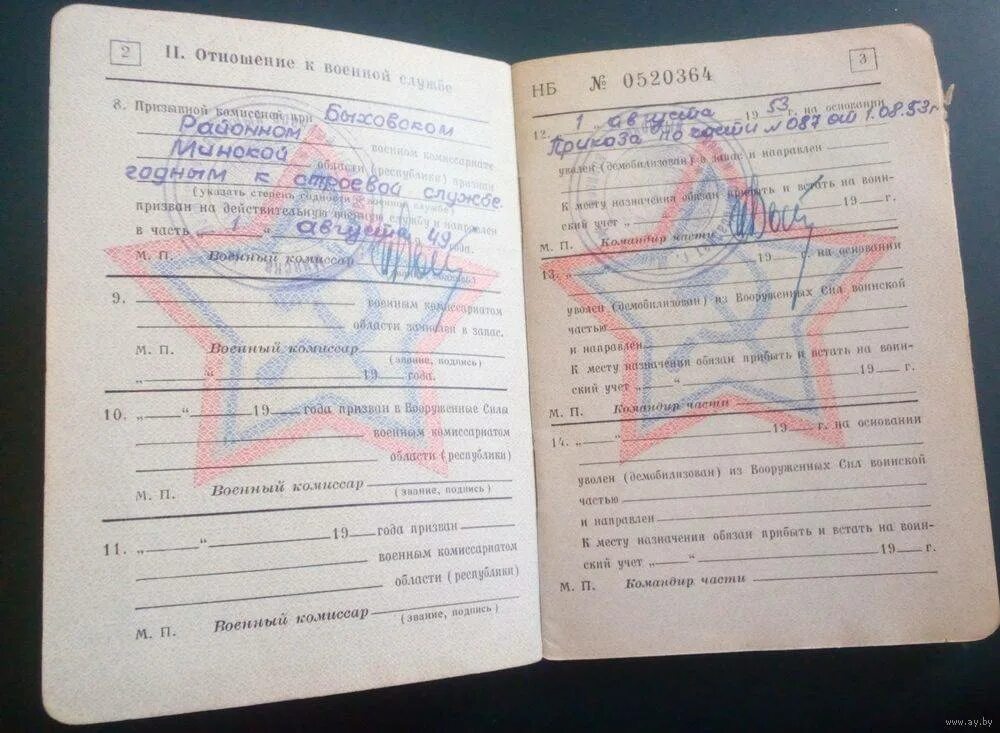 2
II. Отношение к военной службе
8. Призывной комиссией при Быховском
Районном военном комиссариате
Минской области (республики) признан
годным к строевой службе.
(указать степень годности к военной службе)
призван на действительную военную службу и направлен
в часть „ 1 “ августа 49 года.
М. П. Военный комиссар
9.
военным комиссариатом
области зачислен в запас.
М. П. Военный комиссар
(звание, подпись)
„ “ 19 года.
10. „ “ 19 года призван в Вооруженные Силы
военным комиссариатом
области (республики)
М. П. Военный комиссар
(звание, подпись)
11. „ “ 19 года призван
военным комиссариатом
области (республики)
М. П. Военный комиссар
(звание, подпись)
3
НБ № 0520364
12. „ 1 “ августа 19 53 г. на основании
Приказа по части №087 от 1.08.53г
уволен (демобилизован) в запас и направлен
К месту назначения обязан прибыть и встать на воин-
ский учет „ “ 19 г.
М. П. Командир части
13. „ “ 19 г. на основании
уволен (демобилизован) из Вооруженных Сил воинской
частью
и направлен
К месту назначения обязан прибыть и встать на воин-
ский учет „ “ 19 г.
М. П. Командир части
14. „ “ 19 г. на основании
уволен (демобилизован) из Вооруженных Сил воинской
частью
и направлен
К месту назначения обязан прибыть и встать на воин-
ский учет „ “ 19 г.
М. П. Командир части
www.ay.by